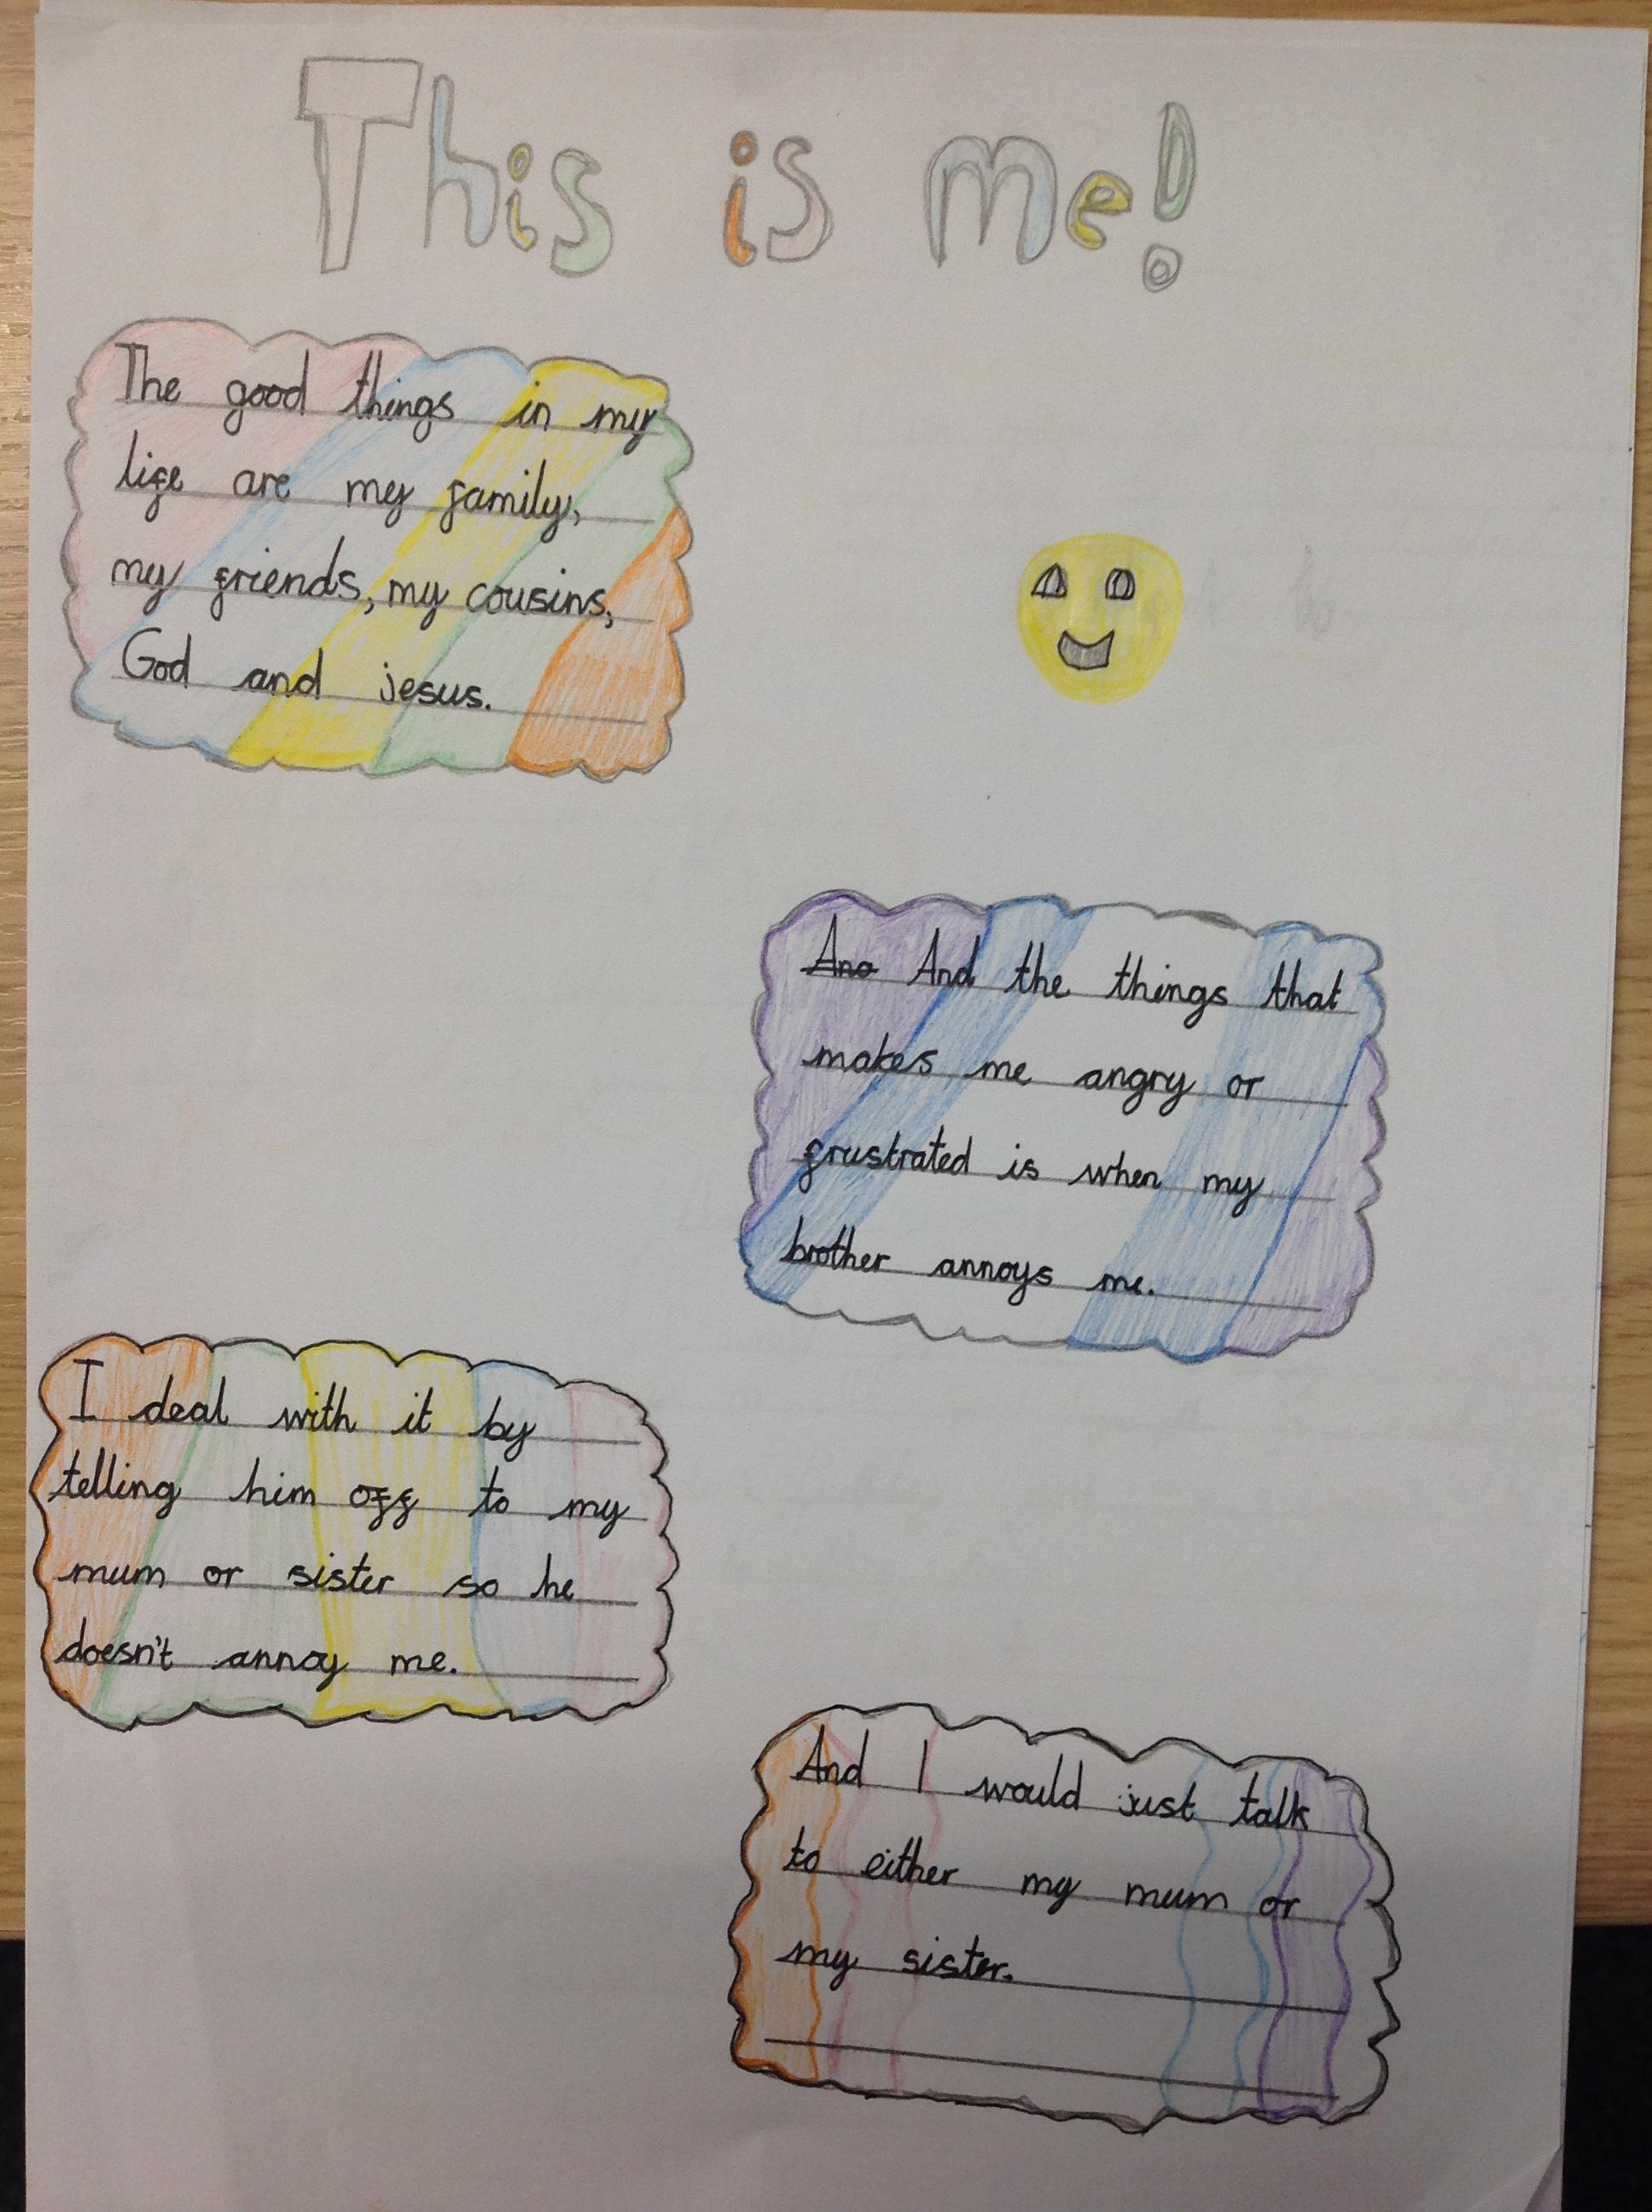 This is me!
The good things in my
life are my family,
my friends, my cousins,
God and jesus.
Ano And the things that
makes me angry or
frustrated is when my
brother annoys me.
I deal with it by
telling him off to my
mum or sister so he
doesn't annoy me.
And I would just talk
to either my mum or
my sister.